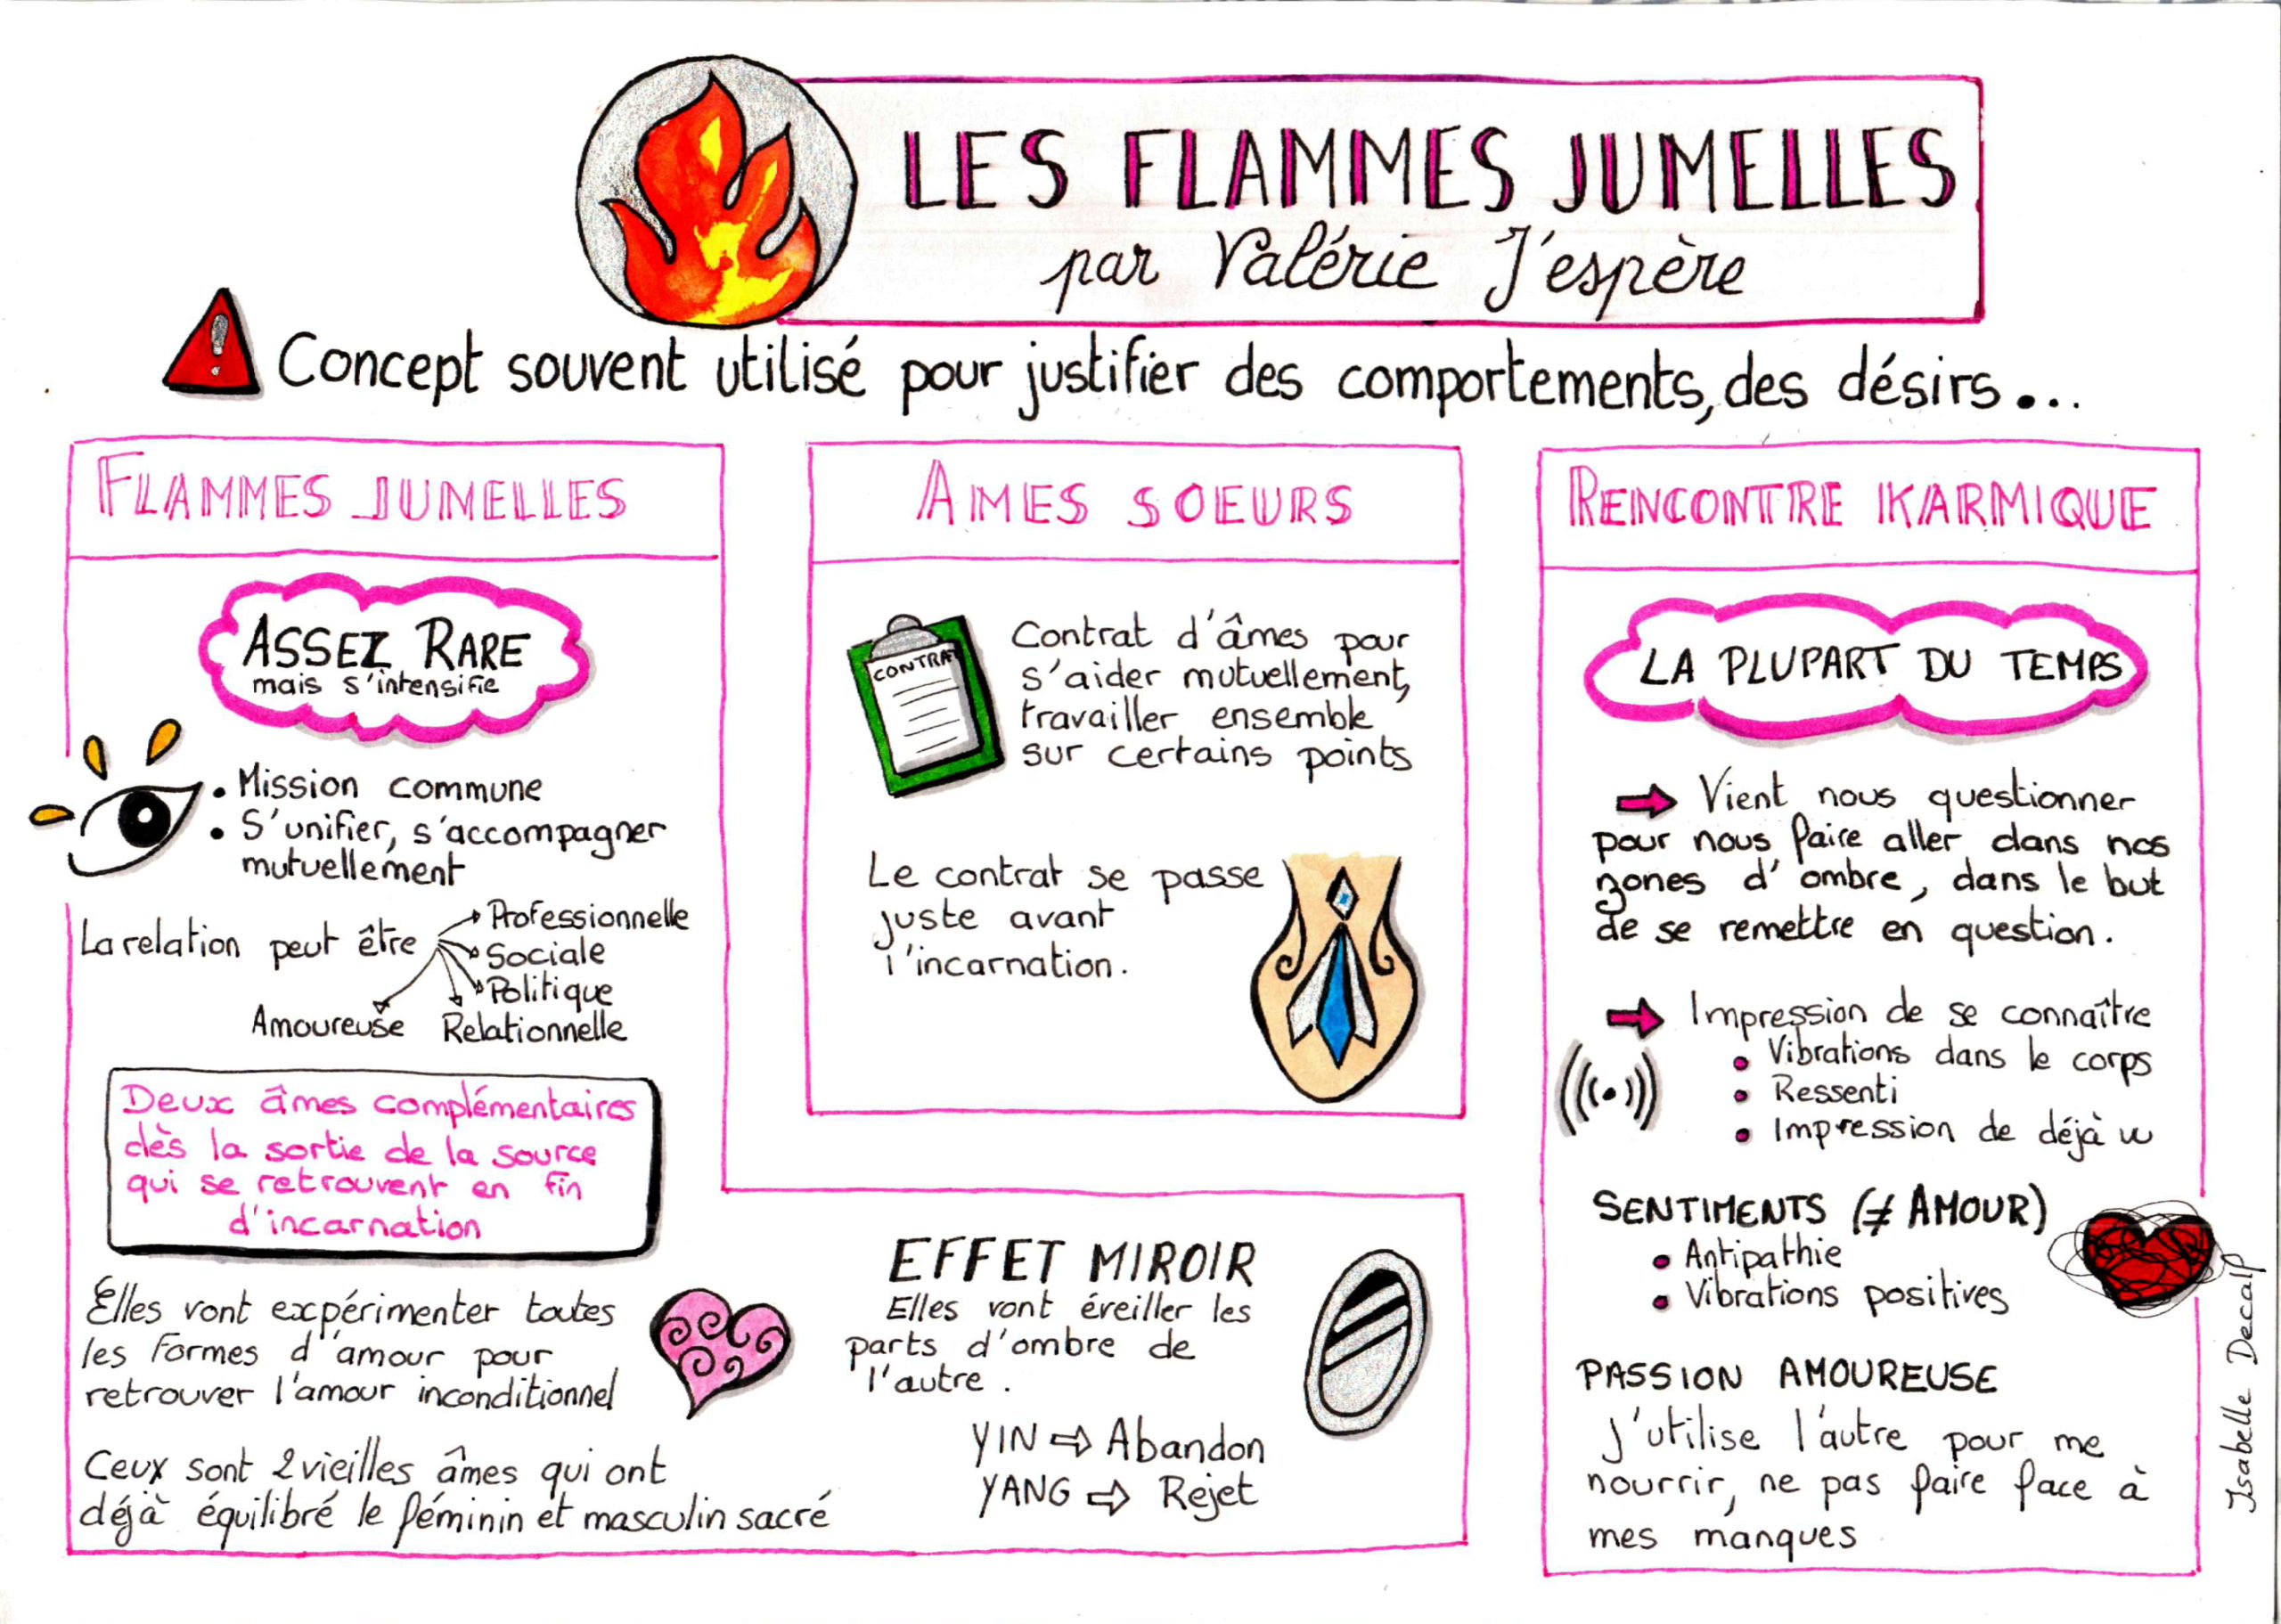 LES FLAMMES JUMELLES
par Valérie J'espère
Concept souvent utilisé pour justifier des comportements, des désirs...
FLAMMES JUMELLES
ASSEZ RARE
mais s'intensifie
• Mission commune
• S'unifier, s'accompagner
mutuellement
La relation peut être
Professionnelle
Sociale
Politique
Amoureuse Relationnelle
Deux âmes complémentaires
dès la sortie de la source
qui se retrouvent en fin
d'incarnation
Elles vont expérimenter toutes
les formes d'amour pour
retrouver l'amour inconditionnel
Ceux sont 2 vieilles âmes qui ont
déjà équilibré le féminin et masculin sacré
EFFET MIROIR
Elles vont éveiller les
parts d'ombre de
l'autre.
YIN ⇨ Abandon
YANG ⇨ Rejet
AMES SOEURS
CONTRA
Contrat d'âmes pour
s'aider mutuellement,
travailler ensemble
sur certains points
Le contrat se passe
juste avant
l'incarnation.
RENCONTRE KARMIQUE
LA PLUPART DU TEMPS
Vient nous questionner
pour nous faire aller dans nos
zones d'ombre, dans le but
de se remettre en question.
Impression de se connaître
• Vibrations dans le corps
• Ressenti
• Impression de déjà vu
SENTIMENTS (≠ AMOUR)
• Antipathie
• Vibrations positives
PASSION AMOUREUSE
J'utilise l'autre pour me
nourrir, ne pas faire face à
mes manques
Isabelle Decalf